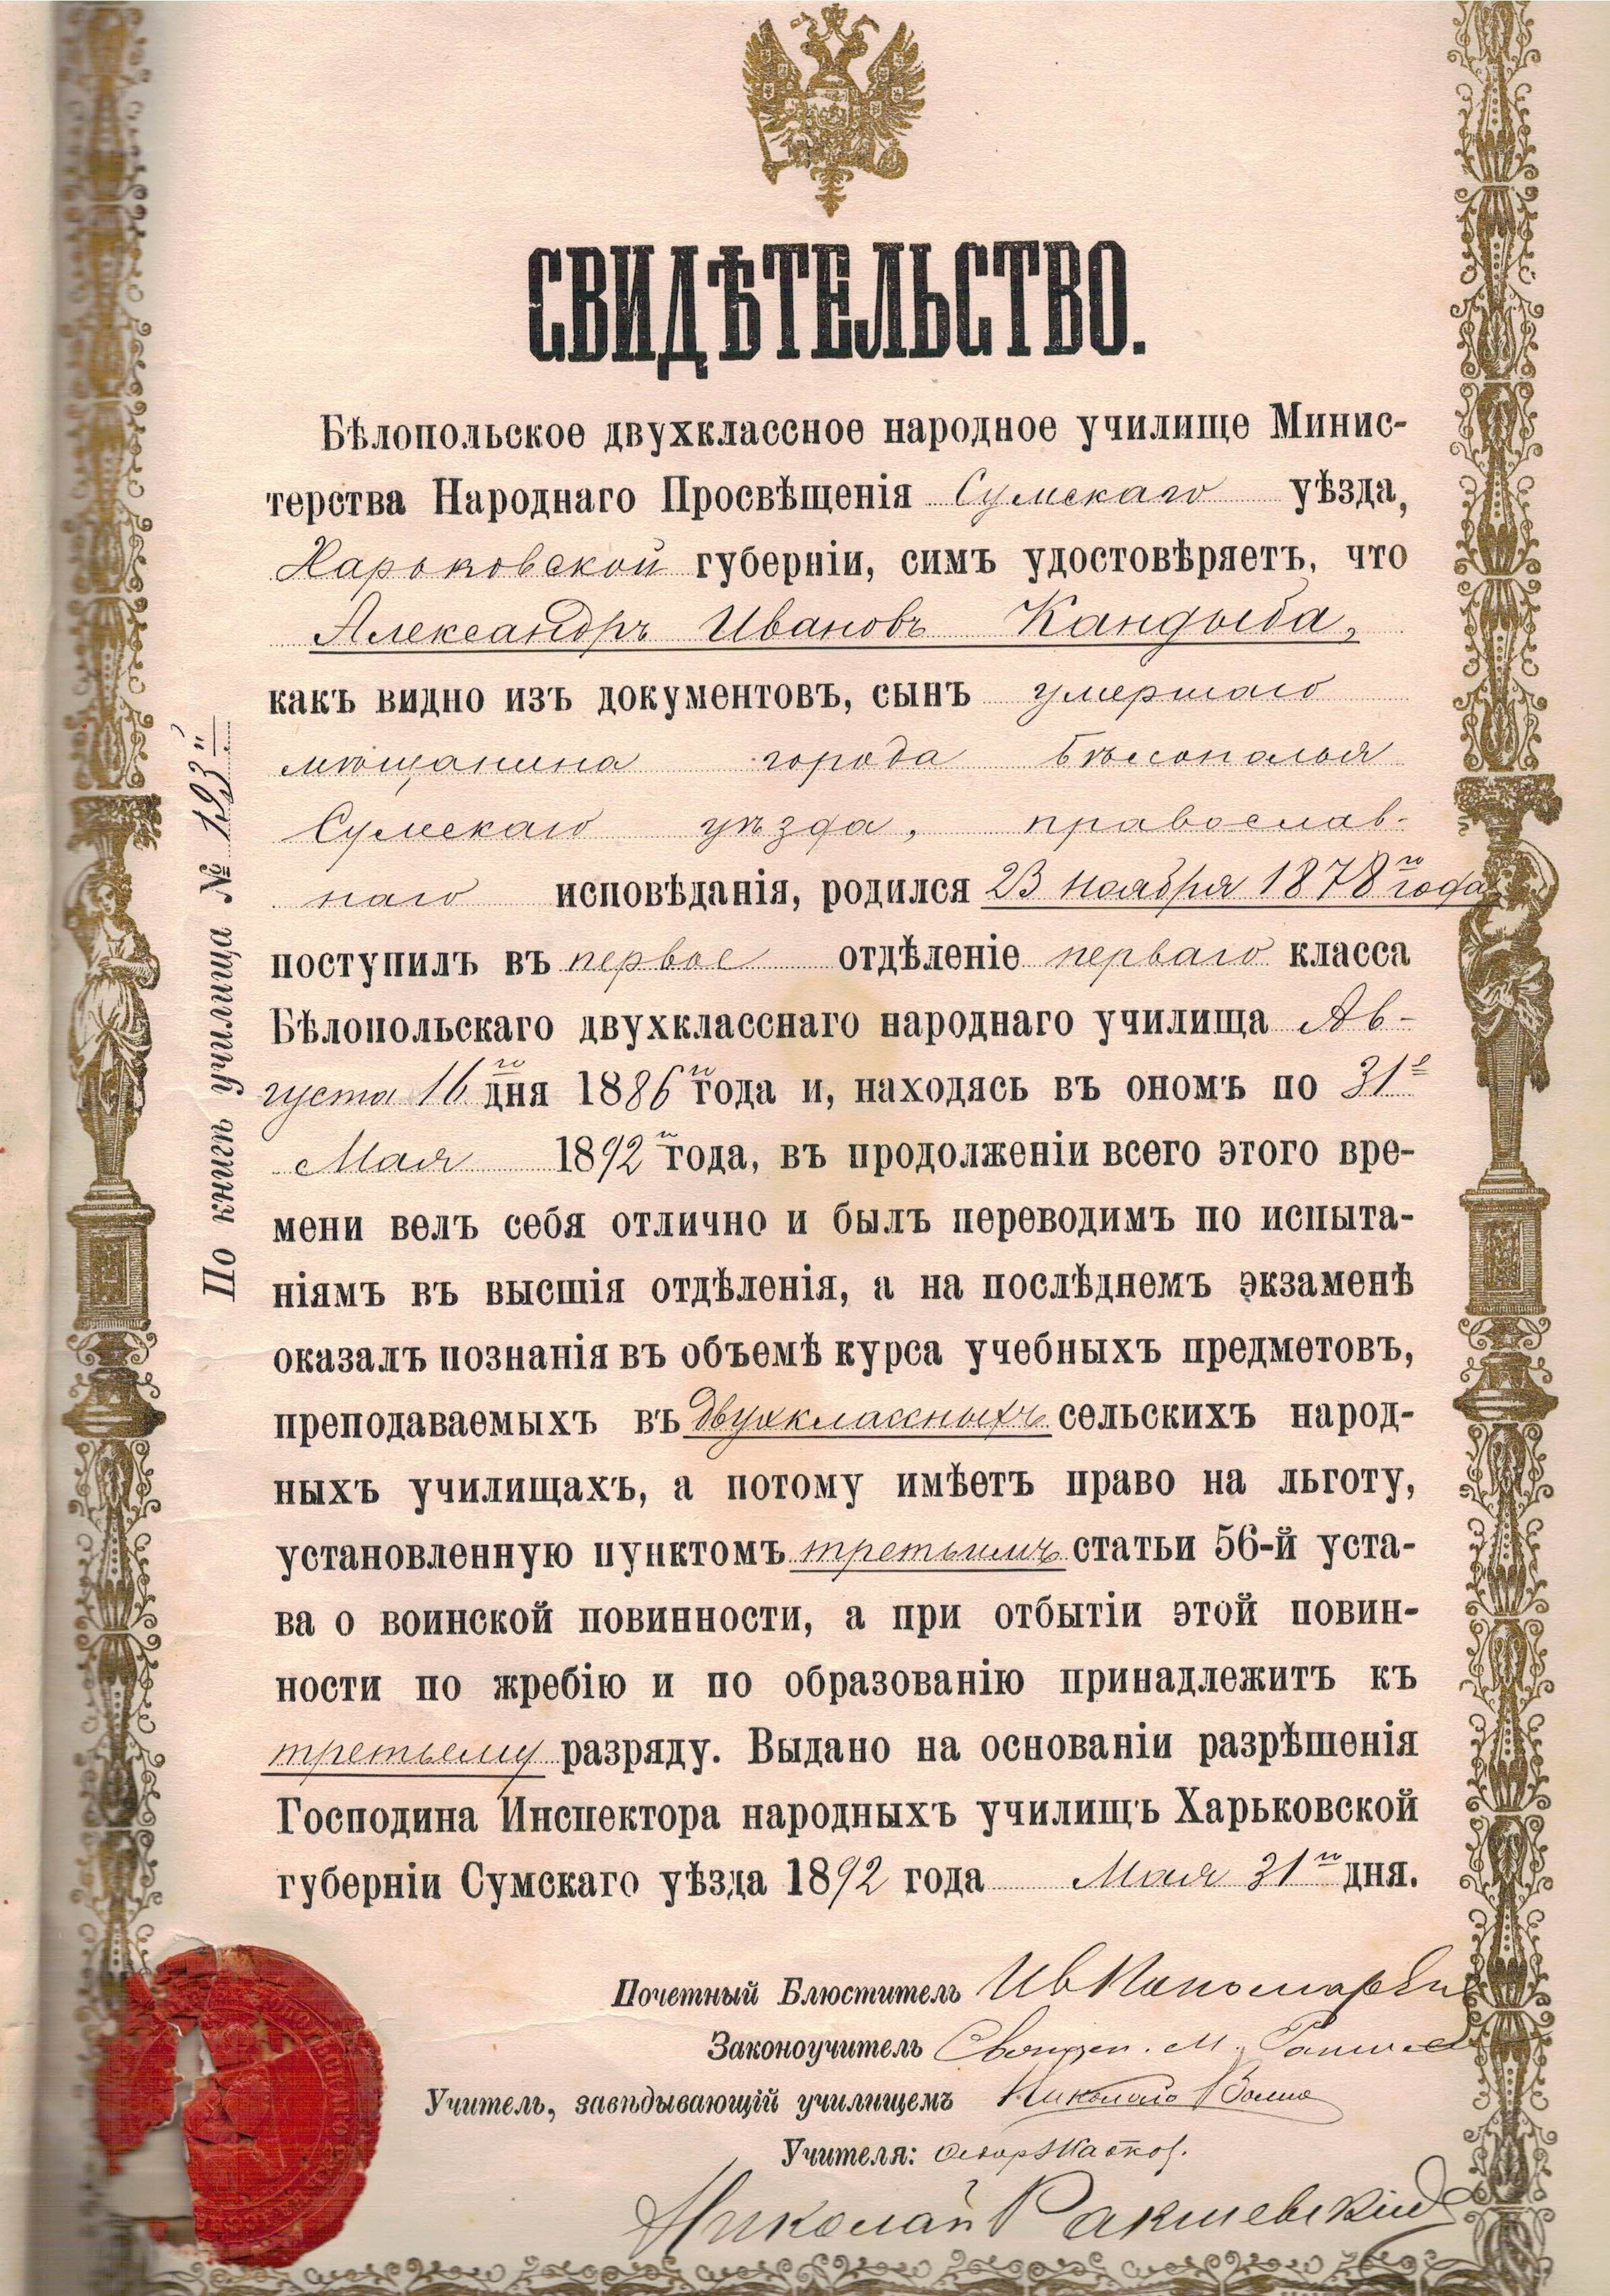 СВИДѢТЕЛЬСТВО.
Бѣлопольское двухклассное народное училище Минис-
терства Народнаго Просвѣщенія Сумскаго уѣзда,
Харьковской губерніи, симъ удостовѣряетъ, что
Александръ Ивановъ Кандыба,
какъ видно изъ документовъ, сынъ умершаго
мѣщанина города Бѣлополья
Сумскаго уѣзда, православ-
наго исповѣданія, родился 23 ноября 1878го года
поступилъ въ первое отдѣленіе перваго класса
Бѣлопольскаго двухкласснаго народнаго училища Ав-
густа 16го дня 1886го года и, находясь въ ономъ по 31е
Мая 1892го года, въ продолженіи всего этого вре-
мени велъ себя отлично и былъ переводимъ по испыта-
ніямъ въ высшія отдѣленія, а на послѣднемъ экзаменѣ
оказалъ познанія въ объемѣ курса учебныхъ предметовъ,
преподаваемыхъ въ двухклассныхъ сельскихъ народ-
ныхъ училищахъ, а потому имѣетъ право на льготу,
установленную пунктомъ третьимъ статьи 56-й уста-
ва о воинской повинности, а при отбытіи этой повин-
ности по жребію и по образованію принадлежитъ къ
третьему разряду. Выдано на основаніи разрѣшенія
Господина Инспектора народныхъ училищъ Харьковской
губерніи Сумскаго уѣзда 1892 года Мая 31го дня.
По книгѣ училища № 123
Почетный Блюститель Ив
Законоучитель Священ. М.
Учитель, завѣдывающій училищемъ Николай
Учителя:
Николай Ракшевскій